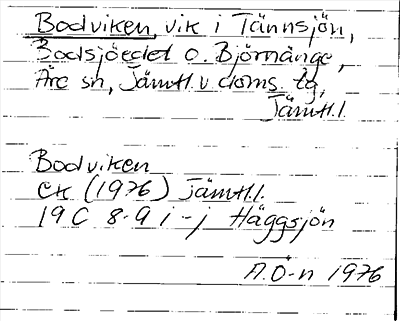 Bodviken, vik i Tännsjön,
Bodsjöedet o. Björnänge,
Åre sn, Jämtl. v. doms. tg,
Jämtl.l.
Bodviken
ek (1976) Jämtl.l.
19 C 8-9 i-j Häggsjön
A.Ö-n 1976